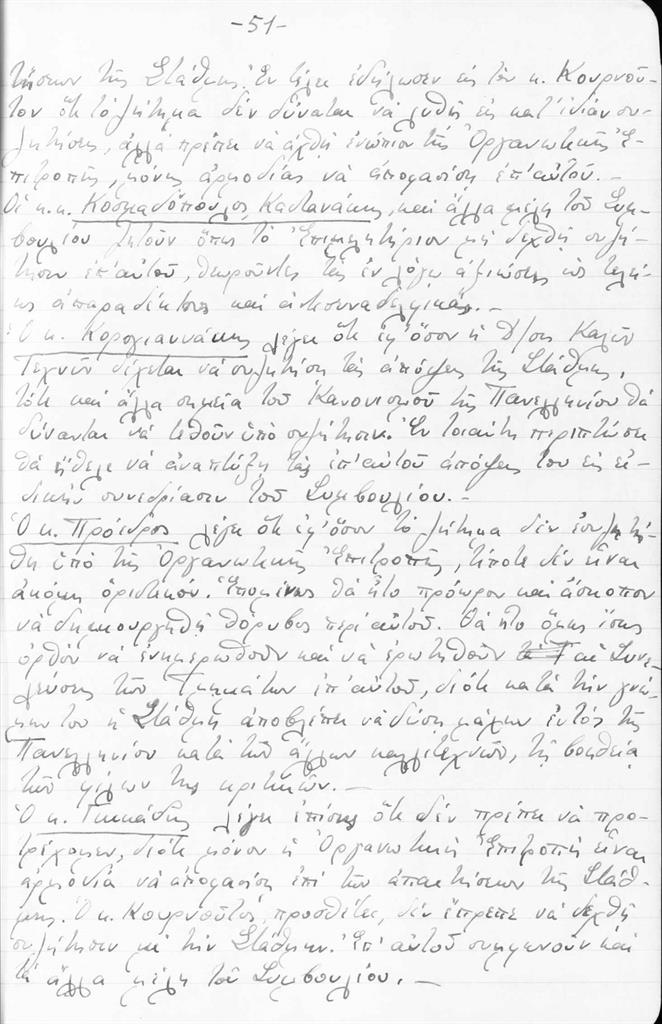 -51-
τήσεων τῆς Στάθμης. Ἐν τέλει ἐδήλωσεν εἰς τὸν κ. Κουρνοῦ-
τον ὅτι τὸ ζήτημα δὲν δύναται νὰ λυθῇ εἰς κατ' ἰδίαν συ-
ζητήσεις, ἀλλὰ πρέπει νὰ ἀχθῇ ἐνώπιον τῆς Ὀργανωτικῆς Ἐ-
πιτροπῆς, μόνης ἁρμοδίας νὰ ἀποφασίσῃ ἐπ' αὐτοῦ. —
Οἱ κ.κ. Κοσμαδόπουλος, Καστανάκης, καὶ ἄλλα μέλη τοῦ Συμ-
βουλίου ζητοῦν ὅπως τὸ Ἐπιμελητήριον μὴ δεχθῇ συζή-
τησιν ἐπ' αὐτοῦ, θεωροῦντες τὰς ἐν λόγῳ ἀξιώσεις ὡς τελεί-
ως ἀπαραδέκτους καὶ ἀντισυναδελφικάς. —
Ὁ κ. Κορογιαννάκης λέγει ὅτι ἐφ' ὅσον ἡ Δ/σις Καλῶν
Τεχνῶν δέχεται νὰ συζητήσῃ τὰς ἀπόψεις τῆς Στάθμης,
τότε καὶ ἄλλα σημεῖα τοῦ Κανονισμοῦ τῆς Πανελληνίου θὰ
δύνανται νὰ τεθοῦν ὑπὸ συζήτησιν. Ἐν τοιαύτῃ περιπτώσει
θὰ ἤθελε νὰ ἀναπτύξῃ τὰς ἐπ' αὐτοῦ ἀπόψεις του εἰς εἰ-
δικὴν συνεδρίασιν τοῦ Συμβουλίου. —
Ὁ κ. Πρόεδρος λέγει ὅτι ἐφ' ὅσον τὸ ζήτημα δὲν ἐσυζητή-
θη ὑπὸ τῆς Ὀργανωτικῆς Ἐπιτροπῆς, τίποτε δὲν εἶναι
ἀκόμη ὁριστικόν. Ἑπομένως θὰ ἦτο πρόωρον καὶ ἄσκοπον
νὰ δημιουργηθῇ θόρυβος περὶ αὐτοῦ. Θὰ ἦτο ὅμως ἴσως
ὀρθὸν νὰ ἐνημερωθοῦν καὶ νὰ ἐρωτηθοῦν αἱ Συνε-
λεύσεις τῶν Τμημάτων ἐπ' αὐτοῦ, διότι κατὰ τὴν γνώ-
μην του ἡ Στάθμη ἀποβλέπει νὰ δώσῃ μάχην ἐντὸς τῆς
Πανελληνίου κατὰ τῶν ἄλλων καλλιτεχνῶν, τῇ βοηθείᾳ
τῶν φίλων της κριτικῶν. —
Ὁ κ. λέγει ἐπίσης ὅτι δὲν πρέπει νὰ προ-
τρέχωμεν, διότι μόνον ἡ Ὀργανωτικὴ Ἐπιτροπὴ εἶναι
ἁρμοδία νὰ ἀποφασίσῃ ἐπὶ τῶν ἀπαιτήσεων τῆς Στάθ-
μης. Ὁ κ. Κουρνοῦτος, προσθέτει, δὲν ἔπρεπε νὰ δεχθῇ
συζήτησιν μὲ τὴν Στάθμην. Ἐπ' αὐτοῦ συμφωνοῦν καὶ
τὰ ἄλλα μέλη τοῦ Συμβουλίου. —